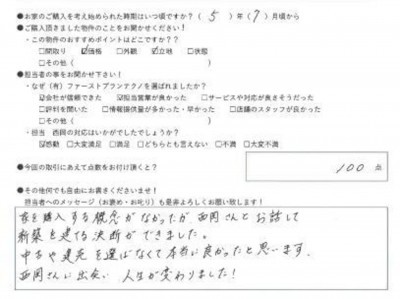 ●お家のご購入を考え始められた時期はいつ頃ですか？（ 5 ）年（ 7 ）月頃から
●ご購入頂きました物件のことをお聞かせください！
・この物件のおすすめポイントはどこですか？？
□間取り ☑価格 □外観 ☑立地 □状態
□その他（
●担当者の事をお聞かせ下さい！
・なぜ（有）ファーストプランテクノを選ばれましたか？
☑会社が信頼できた ☑担当営業が良かった □サービスや対応が良さそうだった
□評判を聞いた □情報提供量が多かった・早かった □店舗のスタッフが良かった
□その他（
・担当 西岡の対応はいかがでしたでしょうか？
☑感動 □大変満足 □満足 □どちらとも言えない □不満 □大変不満
●今回の取引にあえて点数をお付け頂くと？ 100 点
●その他何でも自由にお書きくださいませ！
担当者へのメッセージ（お褒め・お叱り）も是非よろしくお願い致します！
家を購入する概念がなかったが西岡さんとお話して
新築を建てる決断ができました。
中古や建売を選ばなくて本当に良かったと思います。
西岡さんに出会い 人生が変わりました！